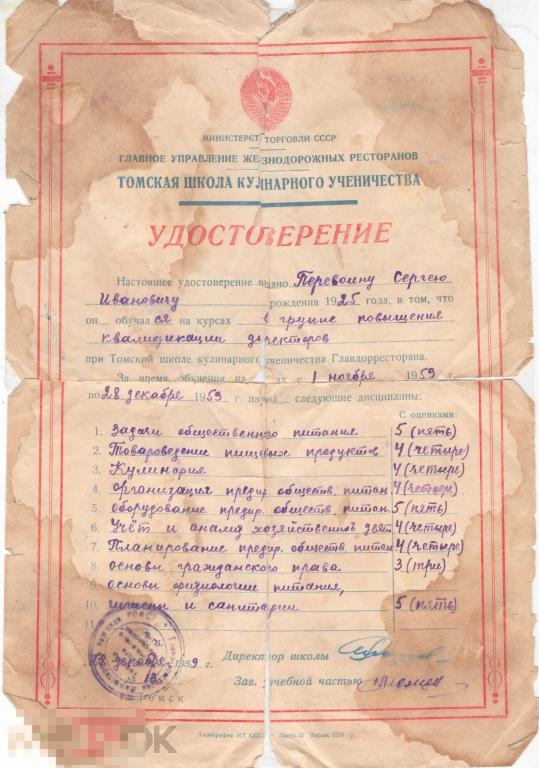 МИНИСТЕРСТ ТОРГОВЛИ СССР
ГЛАВНОЕ УПРАВЛЕНИЕ ЖЕЛЕЗНОДОРОЖНЫХ РЕСТОРАНОВ
ТОМСКАЯ ШКОЛА КУЛИНАРНОГО УЧЕНИЧЕСТВА
УДОСТОВЕРЕНИЕ
Настоящее удостоверение выдано Перевоину Сергею
Ивановичу рождения 1925 года, в том, что
он обучался на курсах в группе повышения
квалификации директоров
при Томской школе кулинарного ученичества Главдорресторана.
За время обучения на с 1 ноября 1959 г
по 28 декабря 1959 г. изучил следующие дисциплины:
С оценками:
1. Задачи общественного питания 5 (пять)
2. Товароведение пищевых продуктов 4 (четыре)
3. Кулинария 4 (четыре)
4. Организация предпр. обществ. питан. 4 (четыре)
5. Оборудование предпр. обществ. питан. 5 (пять)
6. Учёт и анализ хозяйственной деят. 4 (четыре)
7. Планирование предпр. обществ. питан. 4 (четыре)
8. Основы гражданского права 3 (три)
9. Основы физиологии питания,
10. гигиены и санитарии 5 (пять)
11.
28 декабря 1959 г. Директор школы
№ 12 Зав. учебной частью
г. Томск
Типография ИТ СССР Заказ Тираж